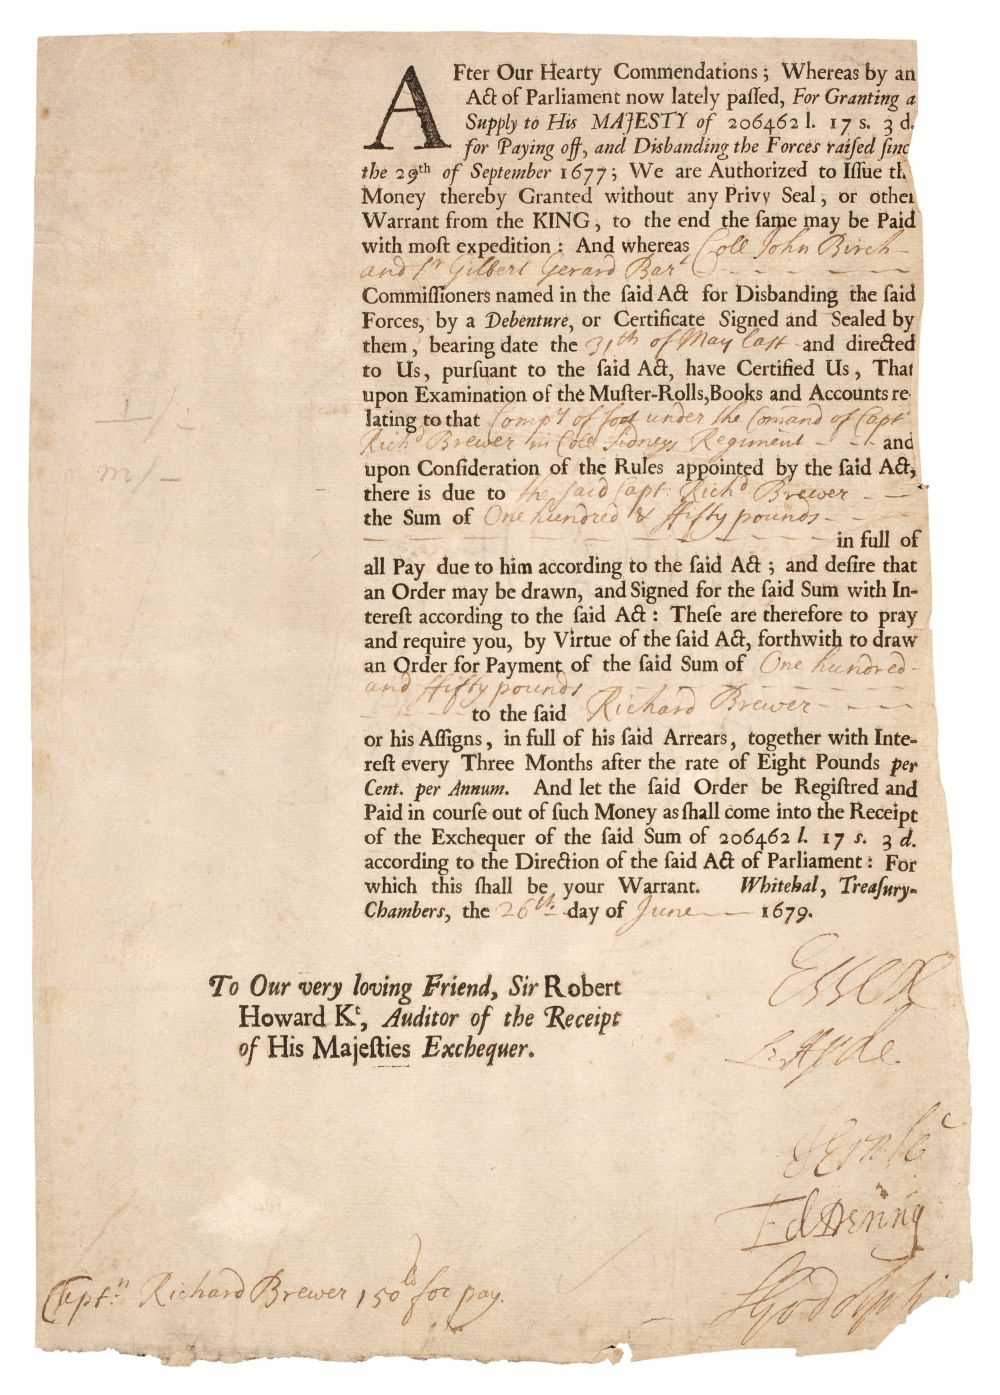 AFter Our Hearty Commendations; Whereas by an
Act of Parliament now lately paſſed, For Granting a
Supply to His MAJESTY of 206462 l. 17 s. 3 d.
for Paying off, and Disbanding the Forces raiſed ſinc
the 29th of September 1677; We are Authorized to Iſſue th
Money thereby Granted without any Privy Seal, or other
Warrant from the KING, to the end the ſame may be Paid
with moſt expedition: And whereas Coll John Birch
and Sr Gilbert Gerard Bart
Commiſſioners named in the ſaid Act for Disbanding the ſaid
Forces, by a Debenture, or Certificate Signed and Sealed by
them, bearing date the 31th of May last and directed
to Us, purſuant to the ſaid Act, have Certified Us, That
upon Examination of the Muſter-Rolls, Books and Accounts re-
lating to that Compy of foot under the Comand of Capt
Richd Brewer in Coll Sidneys Regiment and
upon Conſideration of the Rules appointed by the ſaid Act,
there is due to the said Capt: Richd Brewer
the Sum of One hundred & ffifty pounds
in full of
all Pay due to him according to the ſaid Act; and deſire that
an Order may be drawn, and Signed for the ſaid Sum with In-
tereſt according to the ſaid Act: Theſe are therefore to pray
and require you, by Virtue of the ſaid Act, forthwith to draw
an Order for Payment of the ſaid Sum of One hundred
and ffifty pounds
to the ſaid Richard Brewer
or his Aſſigns, in full of his ſaid Arrears, together with Inte-
reſt every Three Months after the rate of Eight Pounds per
Cent. per Annum. And let the ſaid Order be Regiſtred and
Paid in courſe out of ſuch Money as ſhall come into the Receipt
of the Exchequer of the ſaid Sum of 206462 l. 17 s. 3 d.
according to the Direction of the ſaid Act of Parliament: For
which this ſhall be your Warrant. Whitehal, Treaſury-
Chambers, the 26th day of June 1679.
Essex
To Our very loving Friend, Sir Robert
Howard Kt, Auditor of the Receipt
of His Majeſties Exchequer.
L: Hyde
J Ernle
Ed Dering
S Godolphi
Captn Richard Brewer 150ls for pay.